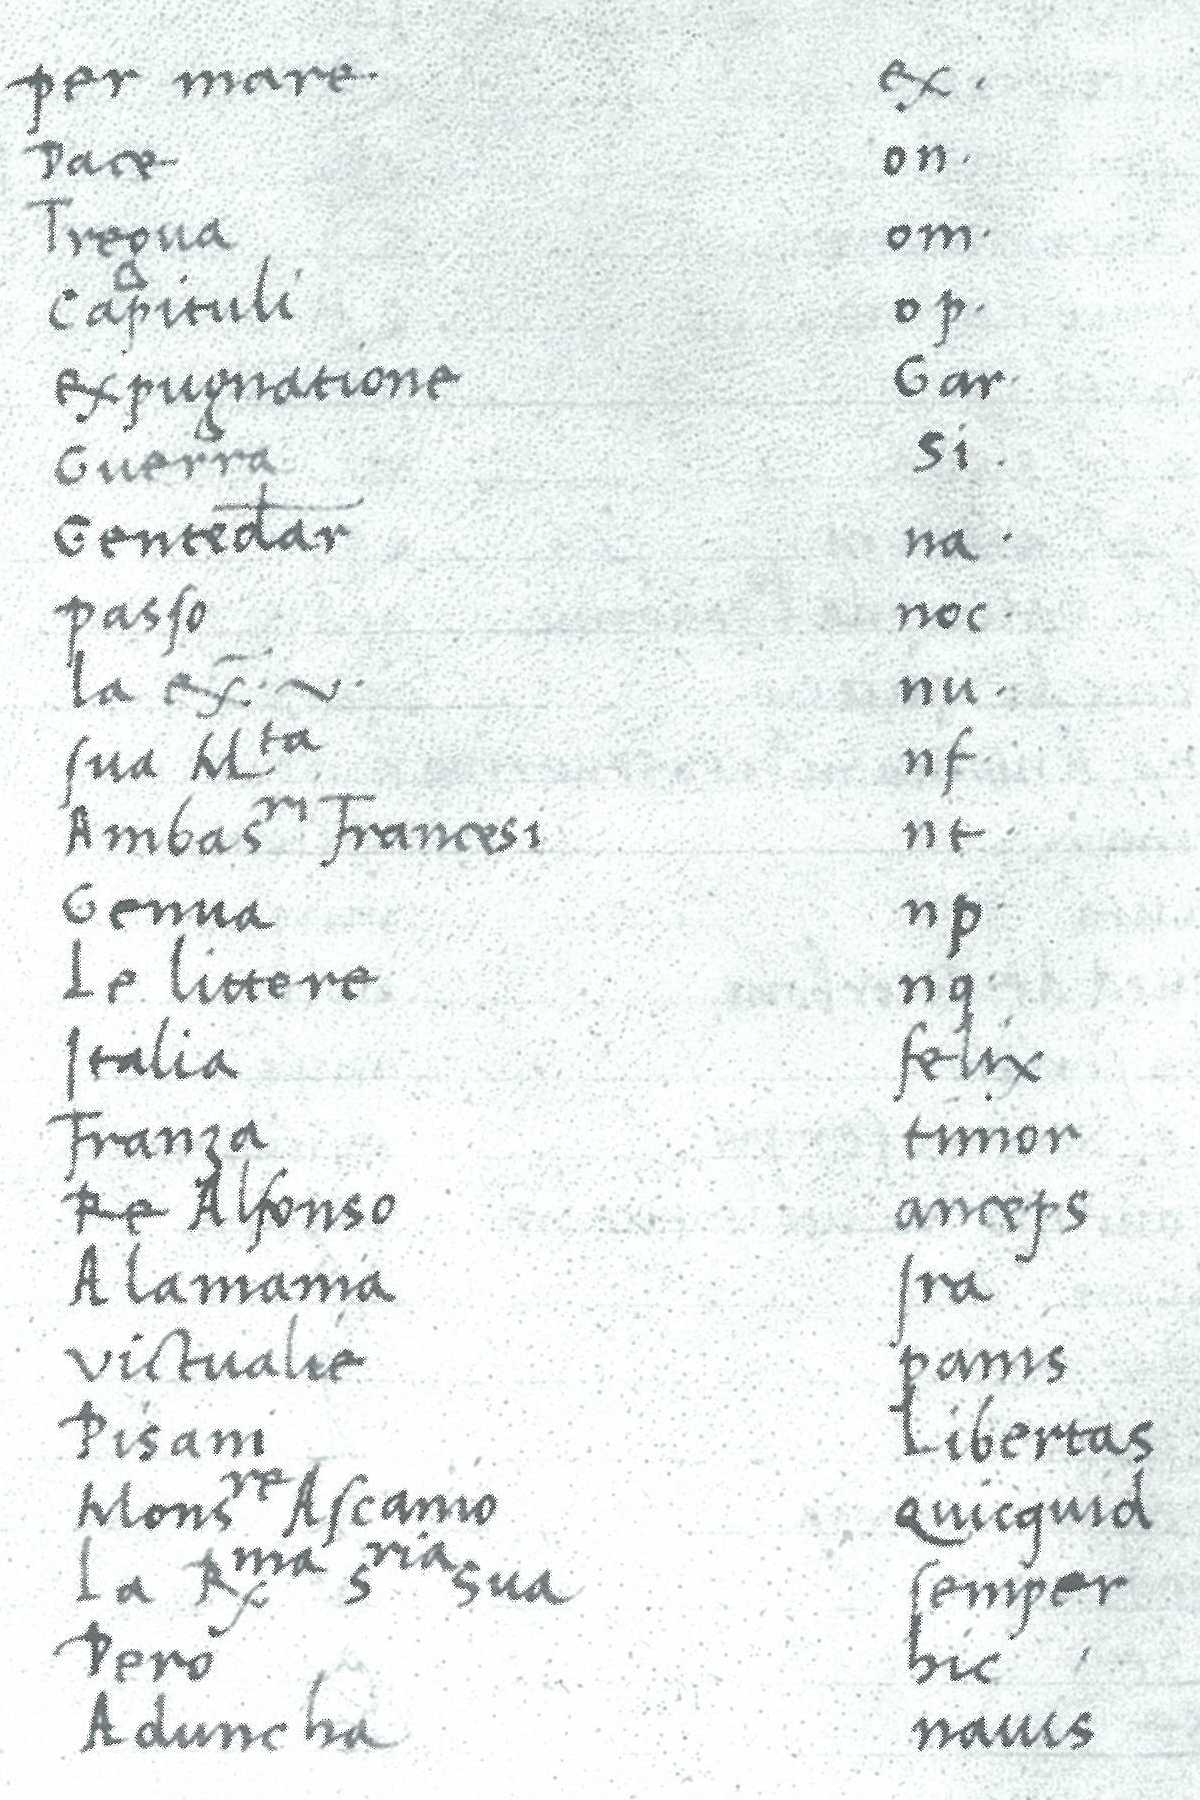 per mare. ex.
Pace on.
Tregua om.
Capituli op.
expugnatione Gar.
Guerra si.
Gentedar na.
passo noc.
la ex. v. nu.
sua Mta nf.
Ambasri Francesi nt.
Genua np.
Le littere nq.
Italia felix
Franza timor
Re Alfonso anceps
Alamania fra
victualie panis
Pisani Libertas
Monsre Ascanio quicquid
la Rma sria sua semper
Pero hic
Aduncha nauis